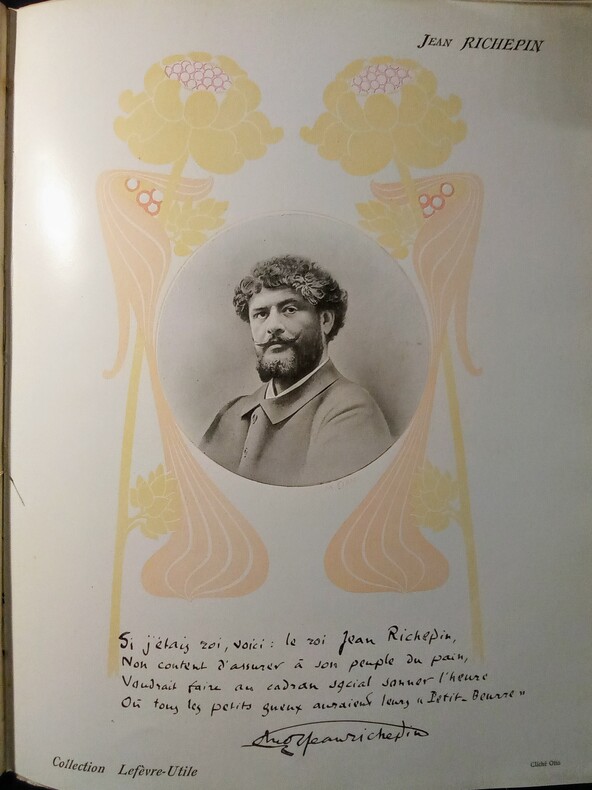 Jean RICHEPIN
Si j'étais roi, voici : le roi Jean Richepin,
Non content d'assurer à son peuple du pain,
Voudrait faire au cadran social sonner l'heure
Où tous les petits gueux auraient leurs « Petit-Beurre »
Jean Richepin
Collection Lefèvre-Utile
Cliché Otto